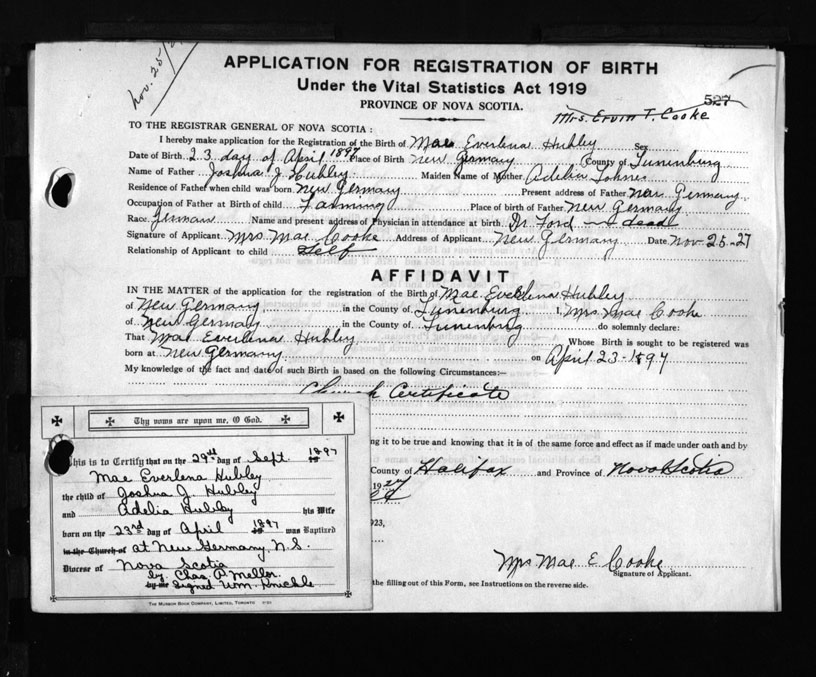 Nov. 25/2
APPLICATION FOR REGISTRATION OF BIRTH
Under the Vital Statistics Act 1919
PROVINCE OF NOVA SCOTIA.
527
Mrs. Ervin T. Cooke
TO THE REGISTRAR GENERAL OF NOVA SCOTIA:
I hereby make application for the Registration of the Birth of Mae Everlena Hubley Sex
Date of Birth 23 day of April 1897 Place of Birth New Germany County of Lunenburg
Name of Father Joshua J. Hubley Maiden Name of Mother Adelia Lohnes
Residence of Father when child was born New Germany Present address of Father New Germany
Occupation of Father at Birth of child Farming Place of birth of Father New Germany
Race German Name and present address of Physician in attendance at birth Dr Ford dead
Signature of Applicant Mrs Mae Cooke Address of Applicant New Germany Date Nov 25-27
Relationship of Applicant to child Self
AFFIDAVIT
IN THE MATTER of the application for the registration of the Birth of Mae Everlena Hubley
of New Germany in the County of Lunenburg I, Mrs Mae Cooke
of New Germany in the County of Lunenburg do solemnly declare:
That Mae Everlena Hubley Whose Birth is sought to be registered was
born at New Germany on April 23-1897
My knowledge of the fact and date of such Birth is based on the following Circumstances:—
Church Certificate
ing it to be true and knowing that it is of the same force and effect as if made under oath and by
County of Halifax and Province of Nova Scotia
1927
1923,
Mrs Mae E. Cooke
Signature of Applicant.
the filling out of this Form, see Instructions on the reverse side.
Thy vows are upon me, O God.
This is to Certify that on the 29th day of Sept. 1897
Mae Everlena Hubley
the child of Joshua J. Hubley
and Adelia Hubley his Wife
born on the 23rd day of April 1897 was Baptized
in the Church of at New Germany, N.S.
Diocese of Nova Scotia
by Chas. P. Mellor
by me Signed Wm. Knickle
THE MUSSON BOOK COMPANY, LIMITED, TORONTO